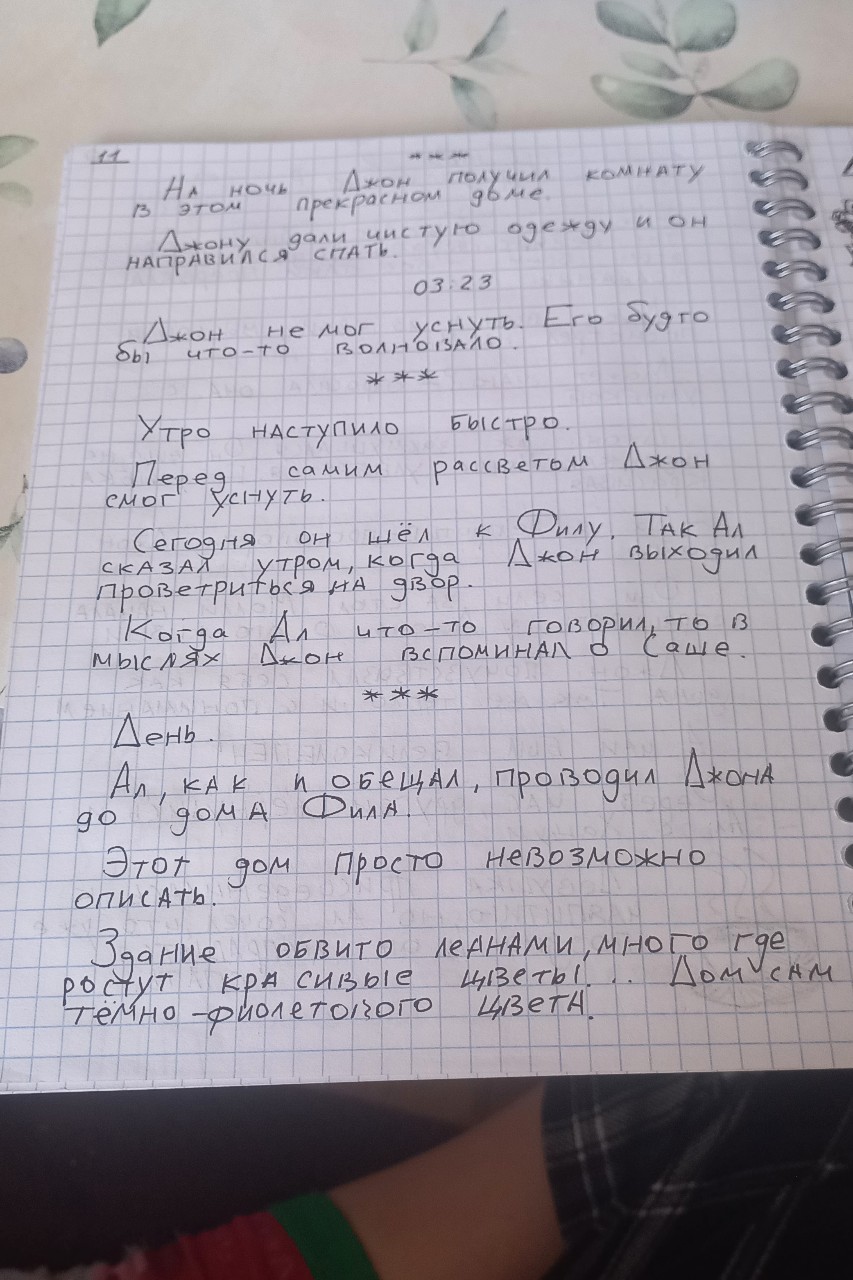 11
***
На ночь Джон получил комнату
в этом прекрасном доме.
Джону дали чистую одежду и он
направился спать.
03:23
Джон не мог уснуть. Его будто
бы что-то волновало.
***
Утро наступило быстро.
Перед самим рассветом Джон
смог уснуть.
Сегодня он шёл к Филу. Так Ал
сказал утром, когда Джон выходил
проветриться на двор.
Когда Ал что-то говорил, то в
мыслях Джон вспоминал о Саше.
***
День.
Ал, как и обещал, проводил Джона
до дома Фила.
Этот дом просто невозможно
описать.
Здание обвито леанами, много где
ростут красивые цветы... Дом сам
тёмно-фиолетового цвета.